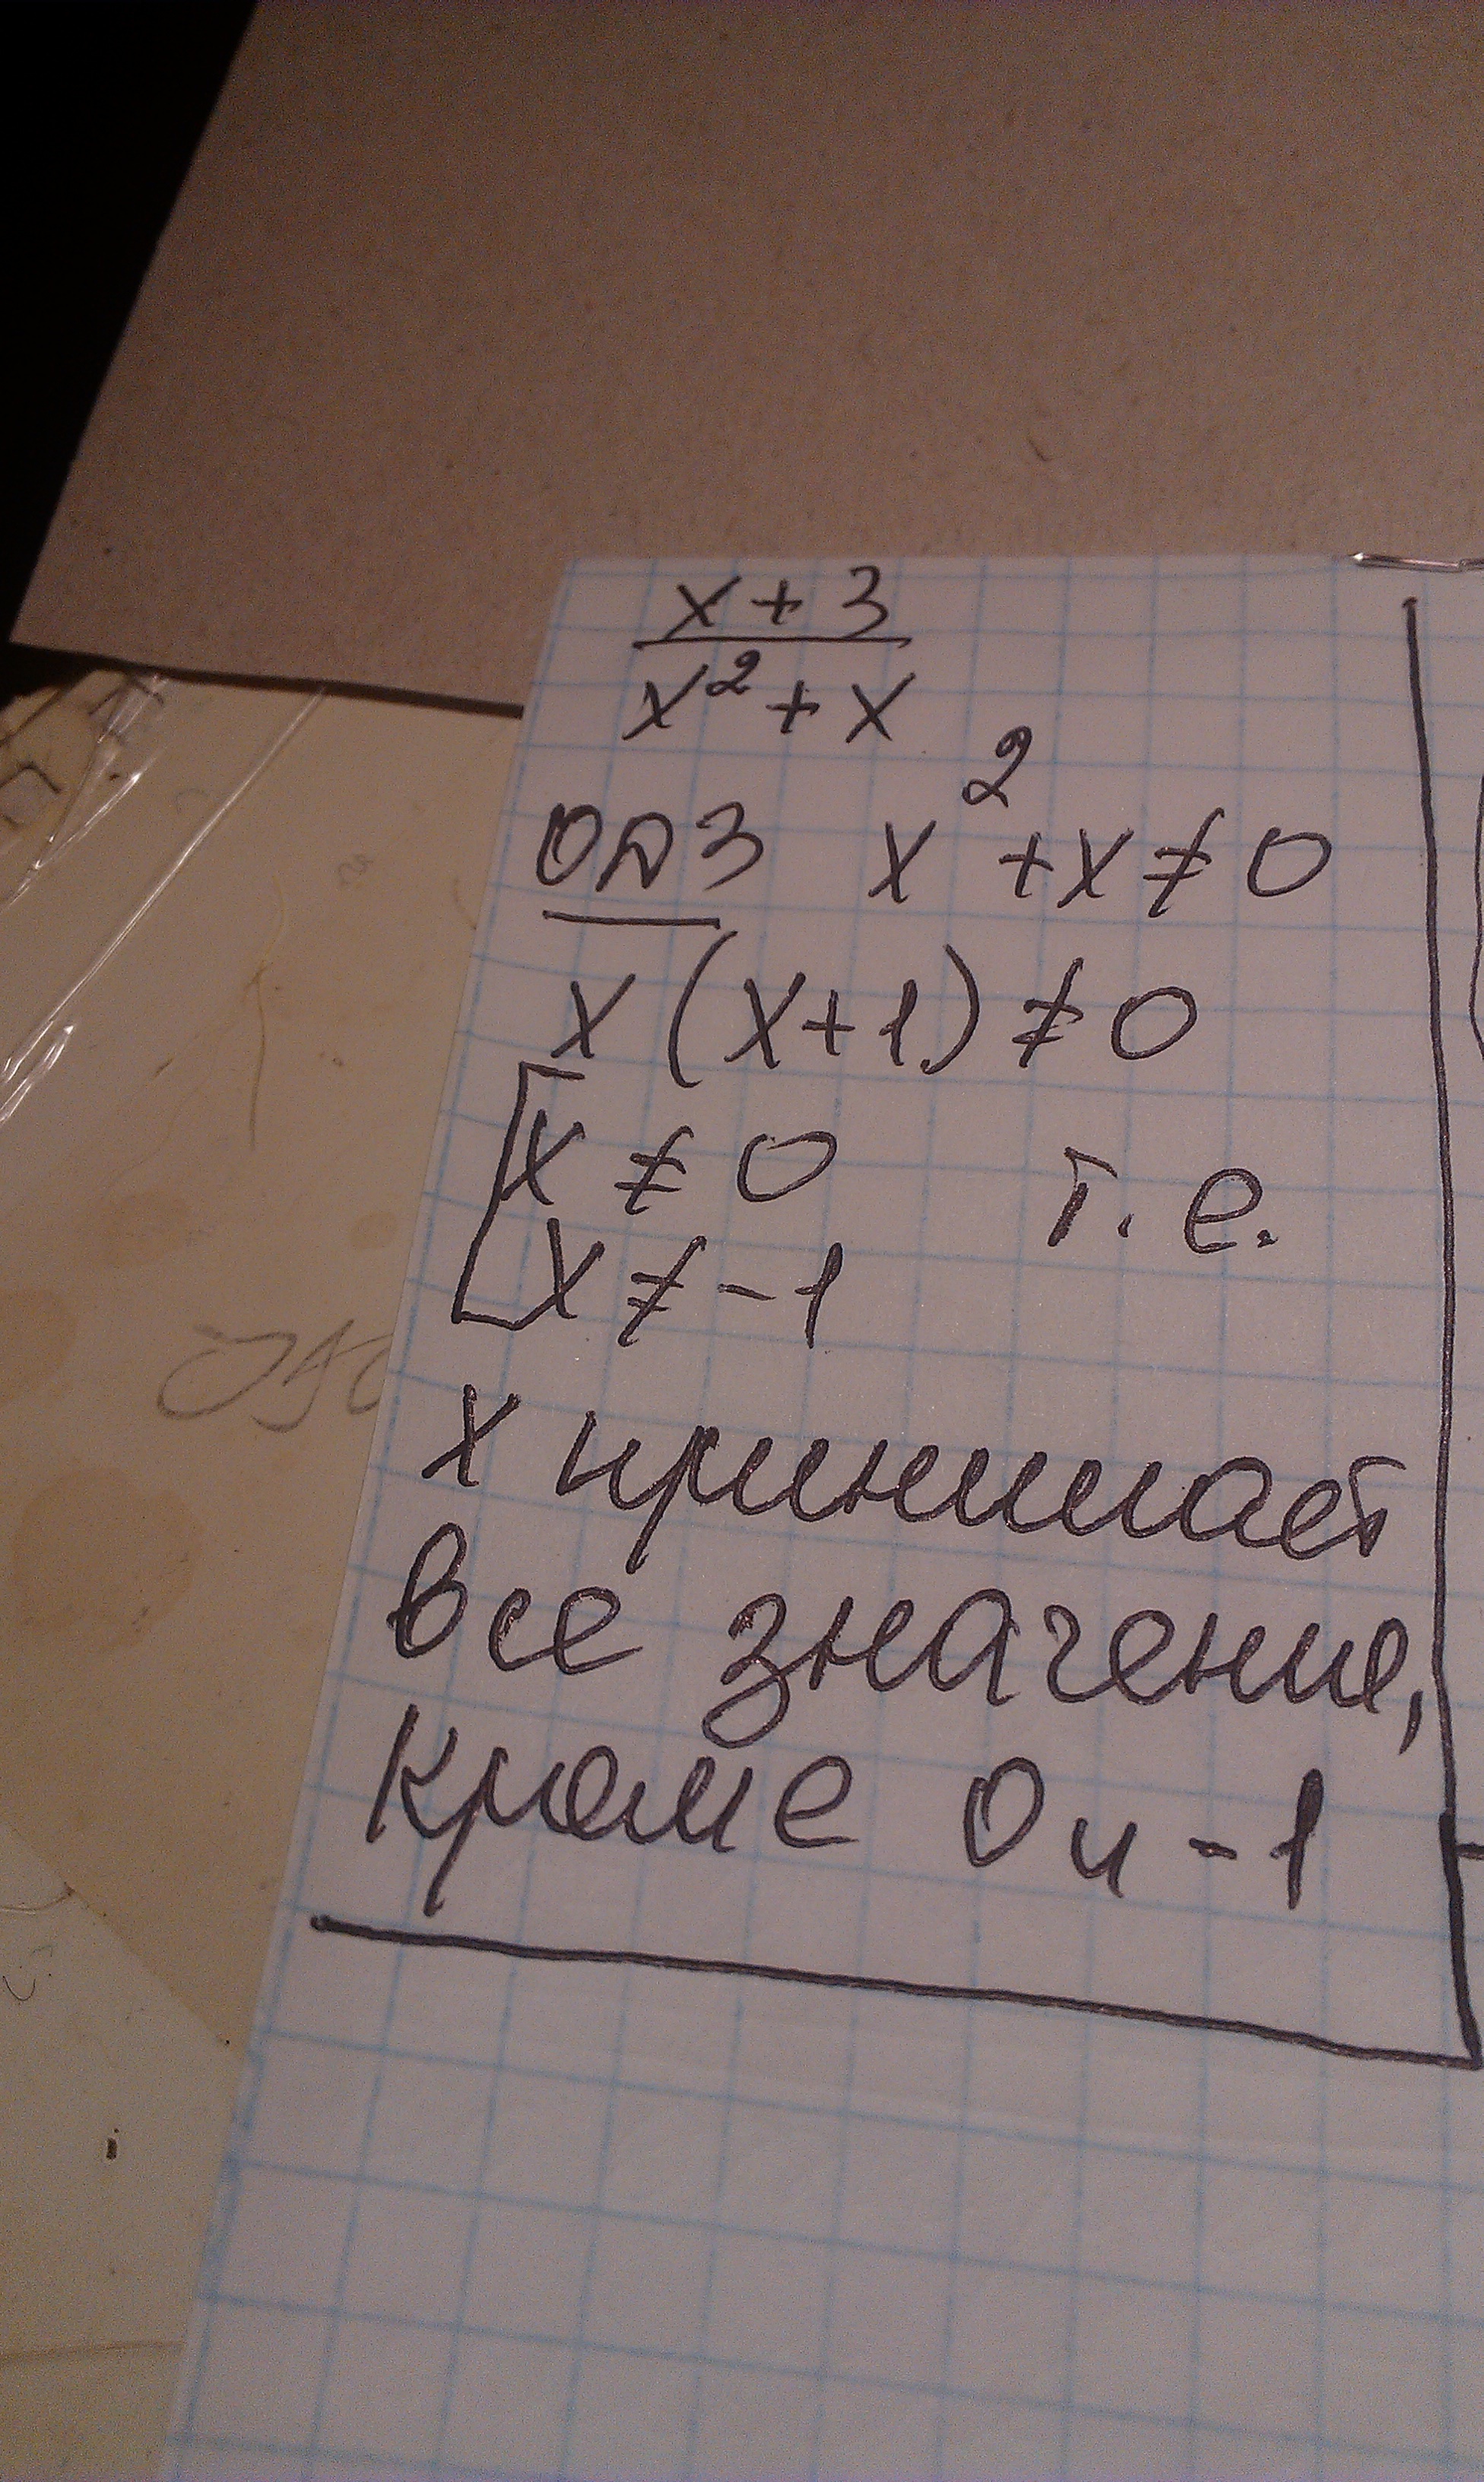 x + 3
x² + x
ОДЗ x² + x ≠ 0
x (x + 1) ≠ 0
[ x ≠ 0 т. е.
x ≠ - 1
x принимает
все значение,
кроме 0 и - 1